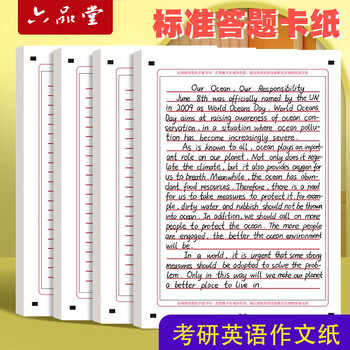 六品堂
标准答题卡纸
Our Ocean, Our Responsibility
June 8th was officially named by the UN
in 2009 as World Oceans Day. World Oceans
Day aims at raising awareness of ocean con-
servation, in a situation where ocean pollu-
tion has become increasingly severe.
As is known to all, ocean plays an impor-
tant role on our planet. Not only does it regu-
late the climate, but it also provides oxygen for
us to breath. Meanwhile, the ocean has abun-
dant food resources. Therefore, there is a need
for us to take measures to protect it. For exam-
ple, dirty water and rubbish should not be thrown
into ocean. In addition, we should call on more
people to protect the ocean. The more people
are engaged, the better the ocean environment
will be.
In a world, it is urgent that some strong
measures should be adopted to solve the prob-
lem. Only in this way will we make our planet
a better place to live in.
考研英语作文纸